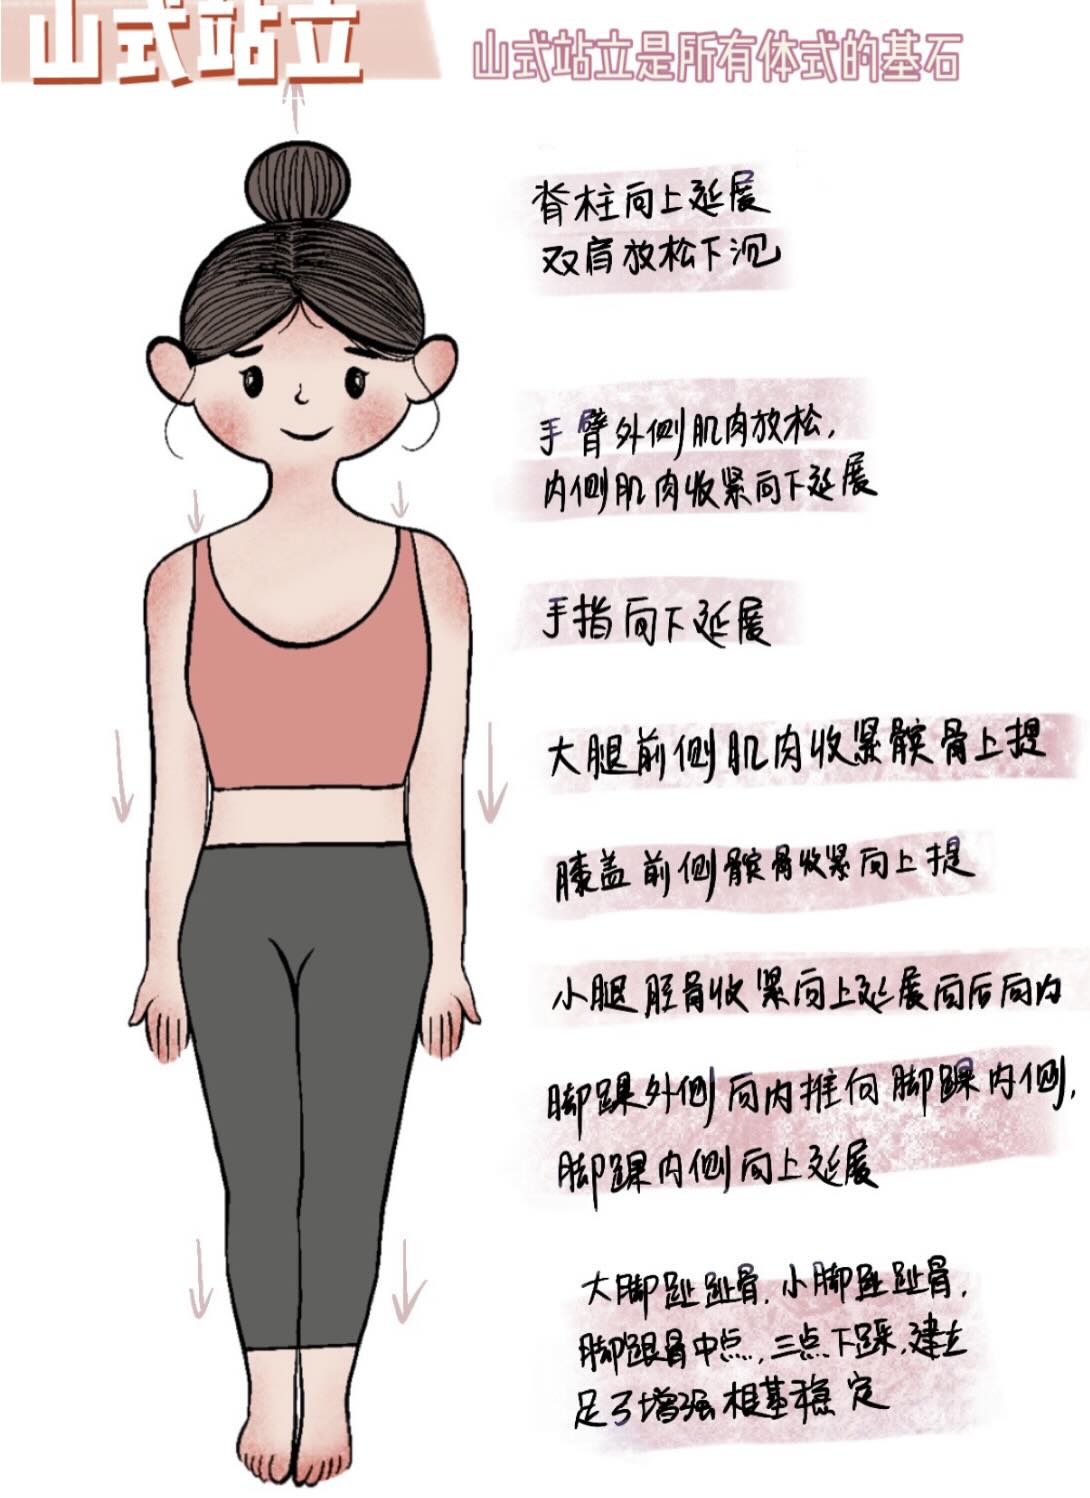 山式站立
山式站立是所有体式的基石
脊柱向上延展
双肩放松下沉
手臂外侧肌肉放松,
内侧肌肉收紧向下延展
手指向下延展
大腿前侧肌肉收紧髌骨上提
膝盖前侧髌骨收紧向上提
小腿胫骨收紧向上延展向后向内
脚踝外侧向内推向脚踝内侧,
脚踝内侧向上延展
大脚趾趾骨.小脚趾趾骨.
脚跟骨中点.三点下踩.建立
足弓增强根基稳定